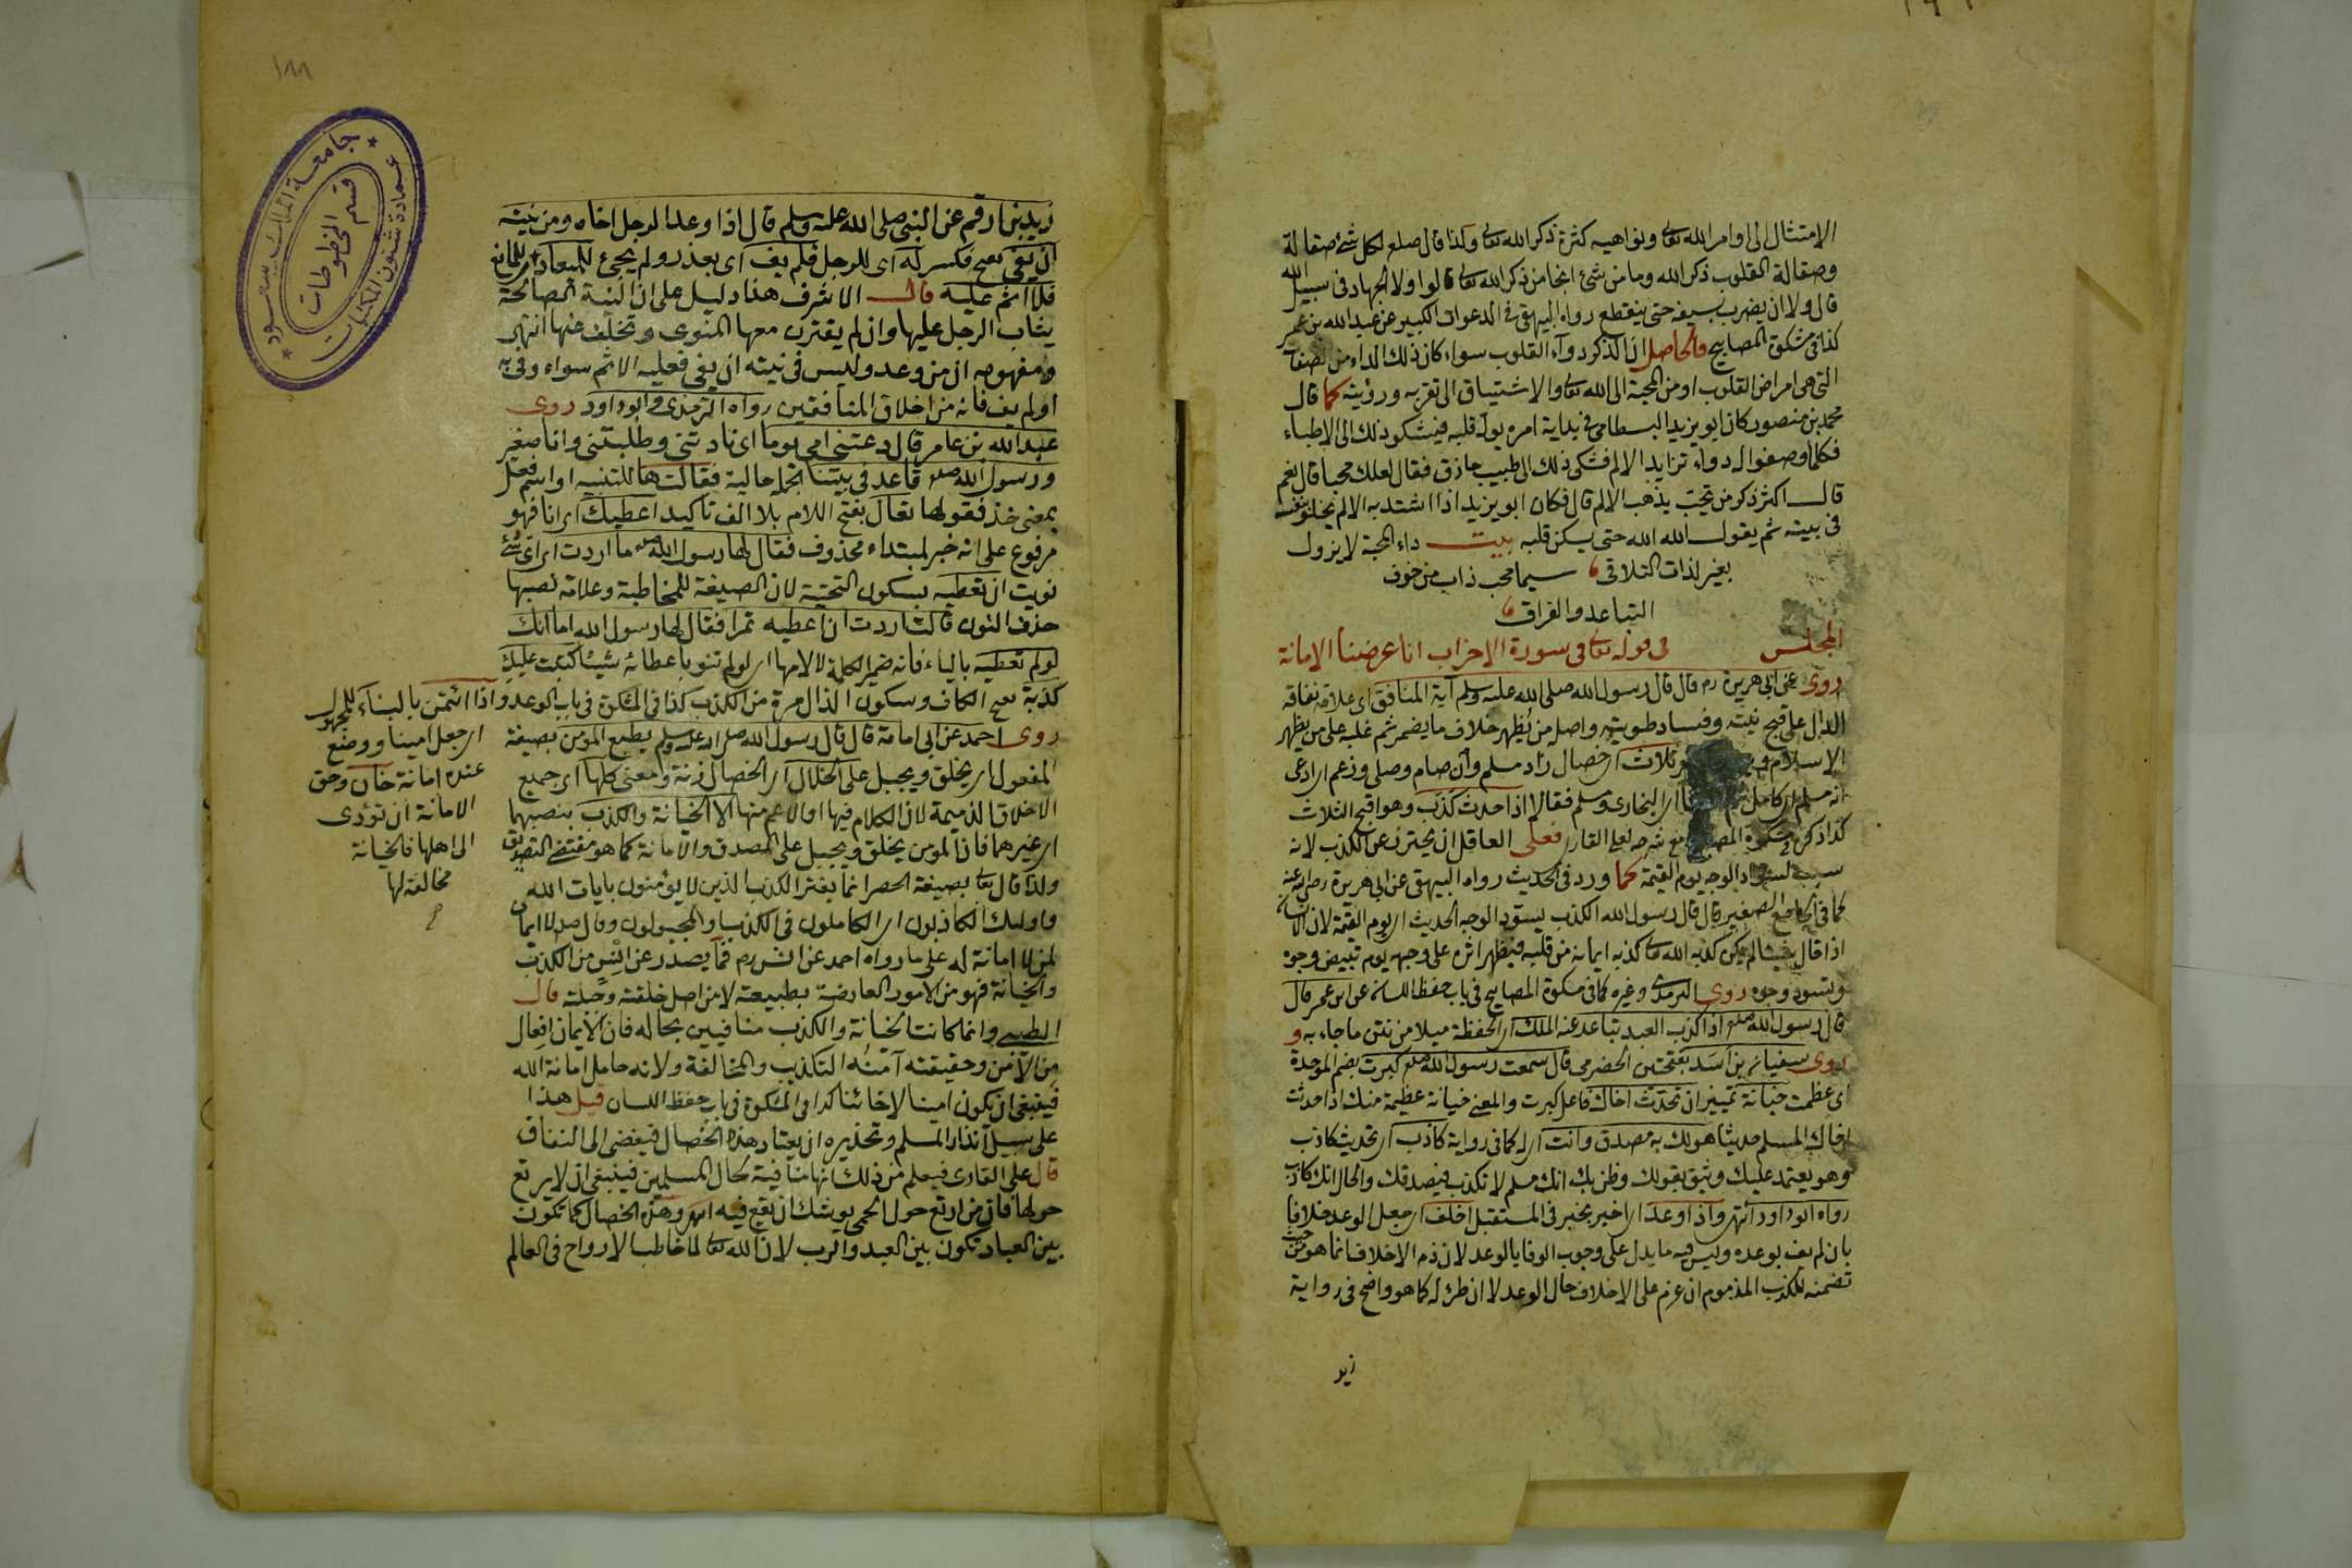 الامتثال الى اوامر الله تعا ونواهيه كثرة ذكر الله تعا ولذا قال صلعم لكل شئ صقالة
وصقالة القلوب ذكر الله وما من شئ انجا من ذكر الله تعا قالوا ولا الجهاد فى سبيل الله
قال ولا ان يضرب بسيفه حتى ينقطع رواه البيهقى فى الدعوات الكبير عن عبد الله بن عمر
كذا فى مشكوة المصابيح فالحاصل ان الذكر دواء القلوب سواء كان ذلك الداء من
التى هى امراض القلوب او من المحبة الى الله تعا والاشتياق الى تقربه ورؤيته كما قال
محمد بن منصور كان ابو يزيد البسطامى فى بداية امره يولم قلبه فيشكو ذلك الى الاطباء
فكلما وصفوا له دواء تزايد الالم فشكى ذلك الى طبيب حاذق فقال لعلك محبا قال نعم
قال اكثر ذكر من تحب يذهب الالم قال فكان ابو يزيد اذا اشتد به الالم يخلو بنفسه
فى بيته ثم يقول الله الله حتى يسكن قلبه بيت داء المحبة لا يزول
بغير لذات التلاقى سيما محب ذاب من خوف
التباعد والفراق
المجلس فى قوله تعا فى سورة الاحزاب انا عرضنا الامانة
روى عن ابى هريرة رم قال قال رسول الله صلى الله عليه وسلم آية المنافق اى علامة نفاقه
الدال على قبح نيته وفساد طويته واصله من يُظهر خلاف ما يضمر ثم غلبه على من يظهر
الاسلام ثلاث اى خصال زاد مسلم وان صام وصلى وزعم اى ادعى
انه مسلم اى كامل اى البخارى ومسلم فقالا اذا حدث كذب وهو اقبح الثلاث
كذا ذكره مشكوة المصابيح مع شرحه لعلى القارى فعلى العاقل ان يحترز عن الكذب لانه
سبب لسواد الوجه يوم القيمة كما ورد فى الحديث رواه البيهقى عن ابى هريرة رضى الله عنه
كما فى الجامع الصغير قال قال رسول الله الكذب يسود الوجه الحديث اى يوم القيمة لان الانسان
اذا قال شيئا لم يكن كذبه الله تعا كذبه ايمانه من قلبه فيظهر اثره على وجهه يوم تبيض وجوه
وتسود وجوه روى الترمذى وغيره كما فى مشكوة المصابيح فى باب حفظ اللسان عن ابن عمر قال
قال رسول الله صلعم اذا كذب العبد تباعد عنه الملك اى الحفظة ميلا من نتن ما جاء به و
روى سفيان بن اسَد بفتحتين الحضرمى قال سمعت رسول الله صلعم كبرت بضم الموحدة
اى عظمت خيانة تمييز ان تحدث اخاك فاعل كبرت والمعنى خيانة عظيمة منك اذا حدثت
اخاك المسلم حديثا هو لك به مصدق وانت اى له كما فى رواية كاذب اى تحديث كاذب
وهو يعتمد عليك ويثق بقولك وظن بك انك مسلم لا تكذب فيصدقك والحال انك كاذب
رواه ابو داود انتهى واذا وعد اى اخبر بخير فى المستقبل اخلف اى جعل الوعد خلافا
بان لم يف بوعده وليس فيه ما يدل على وجوب الوفا بالوعد لان ذم الاخلاف انما هو من حيث
تضمنه للكذب المذموم ان عزم على الاخلاف حال الوعد لا ان طرأ له كما هو واضح فى رواية
زيد
١٨٨
جامعة الملك سعود
عمادة شئون المكتبات
قسم المخطوطات
زيد بن ارقم عن النبى صلى الله عليه وسلم قال اذا وعد الرجل اخاه ومن نيته
ان يفى بفتح فكسر له اى للرجل فلم يف اى بعذر ولم يجئ للميعاد لمانع
فلا اثم عليه قال الاشرف هذا دليل على ان النية الصالحة
يثاب الرجل عليها وان لم يقترن معها المنوى وتخلف عنها انتهى
ومفهومه ان من وعد وليس فى نيته ان يفى فعليه الاثم سواء وفى به
او لم يف فانه من اخلاق المنافقين رواه الترمذى وابو داود روى
عبد الله بن عامر قال دعتنى امى يوما اى نادتنى وطلبتنى وانا صغير
ورسول الله صلعم قاعد فى بيتنا الجملة حالية فقالت ها للتنبيه او اسم فعل
بمعنى خذ فقولها تعالَ بفتح اللام بلا الف تأكيد اعطيك اى انا فهو
مرفوع على انه خبر لمبتداء محذوف فقال لها رسول الله صلعم ما اردت اى اى شئ
نويت ان تعطيه بسكون التحتية لان الصيغة للمخاطبة وعلامة نصبها
حذف النون قالت اردت ان اعطيه تمرا فقال لها رسول الله اما انك
لو لم تعطيه بالياء فانه ضمير الكلمة لا لامها اى لو لم تنو باعطائه شيئا كتبت عليك
كذبة بفتح الكاف وسكون الذال مرة من الكذب كذا فى المشكوة فى باب الوعد واذا ائتمن بالبناء للمجهول
اى جعل امينا ووضع
عنده امانة خان وحق
الامانة ان تؤدى
الى اهلها فالخيانة
مخالفة لها
روى احمد عن ابى امامة قال قال رسول الله صلى الله عليه وسلم يطبع المؤمن بصيغة
المفعول اى يخلق ويجبل على الخلال اى الخصال زنة ومعنى كلها اى جميع
الاخلاق الذميمة لان الكلام فيها او الاعم منها الا الخيانة والكذب بنصبهما
اى غيرهما فان المؤمن يخلق ويجبل على الصدق والامانة كما هو مقتضى التصديق
ولذا قال تعا بصيغة الحصر انما يفترى الكذب الذين لا يؤمنون بايات الله
واولئك الكاذبون اى الكاملون فى الكذب او المجبولون وقال صلعم لا ايمان
لمن لا امانة له على ما رواه احمد عن انس رم فما يصدر عن المؤمن من الكذب
والخيانة فهو من الامور العارضة بطبيعته لا من اصل خلقته وجبلته قال
الطيبى وانما كانت الخيانة والكذب منافيين بحاله فان الايمان افعال
من الامن وحقيقته آمنه التكذيب والمخالفة ولانه حامل امانة الله
فينبغى ان يكون امينا لا خائنا كذا فى المشكوة فى باب حفظ اللسان قيل هذا
على سبيل انذار المسلم وتحذيره ان يعتاد هذه الخصال فيفضى الى النفاق
قال على القارى فيعلم من ذلك انها منافية لحال المسلمين فينبغى ان لا يرتع
حولها فان من ارتع حول الحمى يوشك ان يقع فيه انتهى وهذه الخصال كما تكون
بين العباد تكون بين العبد والرب لان الله تعا لما خاطب الارواح فى العالم